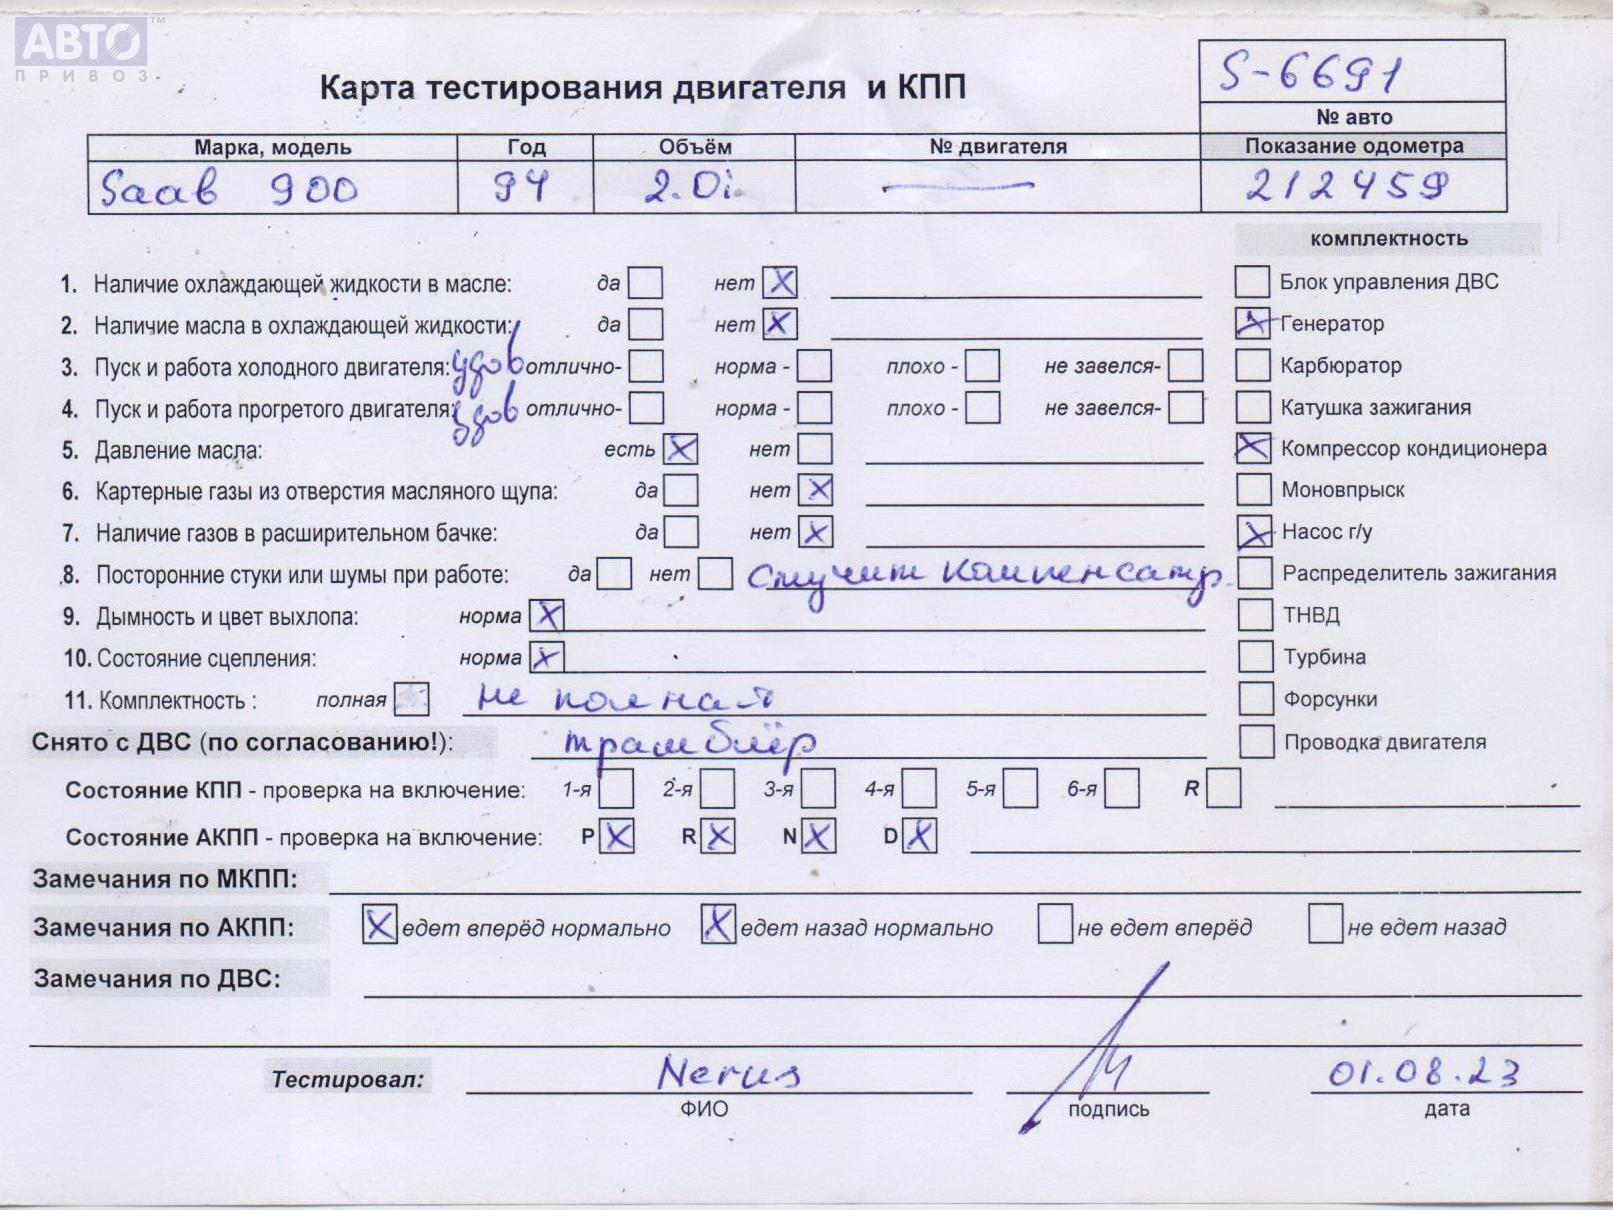 АВТО™
ПРИВОЗ
S-6691
Карта тестирования двигателя и КПП
№ авто
Марка, модель Год Объём № двигателя Показание одометра
Saab 900 94 2.0i — 212459
комплектность
1. Наличие охлаждающей жидкости в масле: да нет X Блок управления ДВС
2. Наличие масла в охлаждающей жидкости: да нет X X Генератор
3. Пуск и работа холодного двигателя: удов отлично- норма - плохо - не завелся- Карбюратор
4. Пуск и работа прогретого двигателя: удов отлично- норма - плохо - не завелся- Катушка зажигания
5. Давление масла: есть X нет X Компрессор кондиционера
6. Картерные газы из отверстия масляного щупа: да нет X Моновпрыск
7. Наличие газов в расширительном бачке: да нет X X Насос г/у
8. Посторонние стуки или шумы при работе: да нет Стучит компенсатр. Распределитель зажигания
9. Дымность и цвет выхлопа: норма X ТНВД
10. Состояние сцепления: норма X Турбина
11. Комплектность : полная не полная Форсунки
Снято с ДВС (по согласованию!): трамблёр Проводка двигателя
Состояние КПП - проверка на включение: 1-я 2-я 3-я 4-я 5-я 6-я R
Состояние АКПП - проверка на включение: P X R X N X D X
Замечания по МКПП:
Замечания по АКПП: X едет вперёд нормально X едет назад нормально не едет вперёд не едет назад
Замечания по ДВС:
Тестировал: 01.08.23
ФИО подпись дата